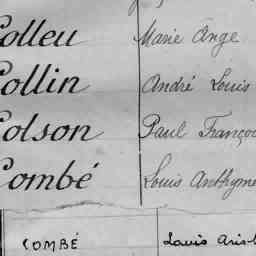 Colleu Marie Ange
Collin André Louis
Colson Paul Françoi
Combé Louis Anthyme
COMBÉ Louis Arist